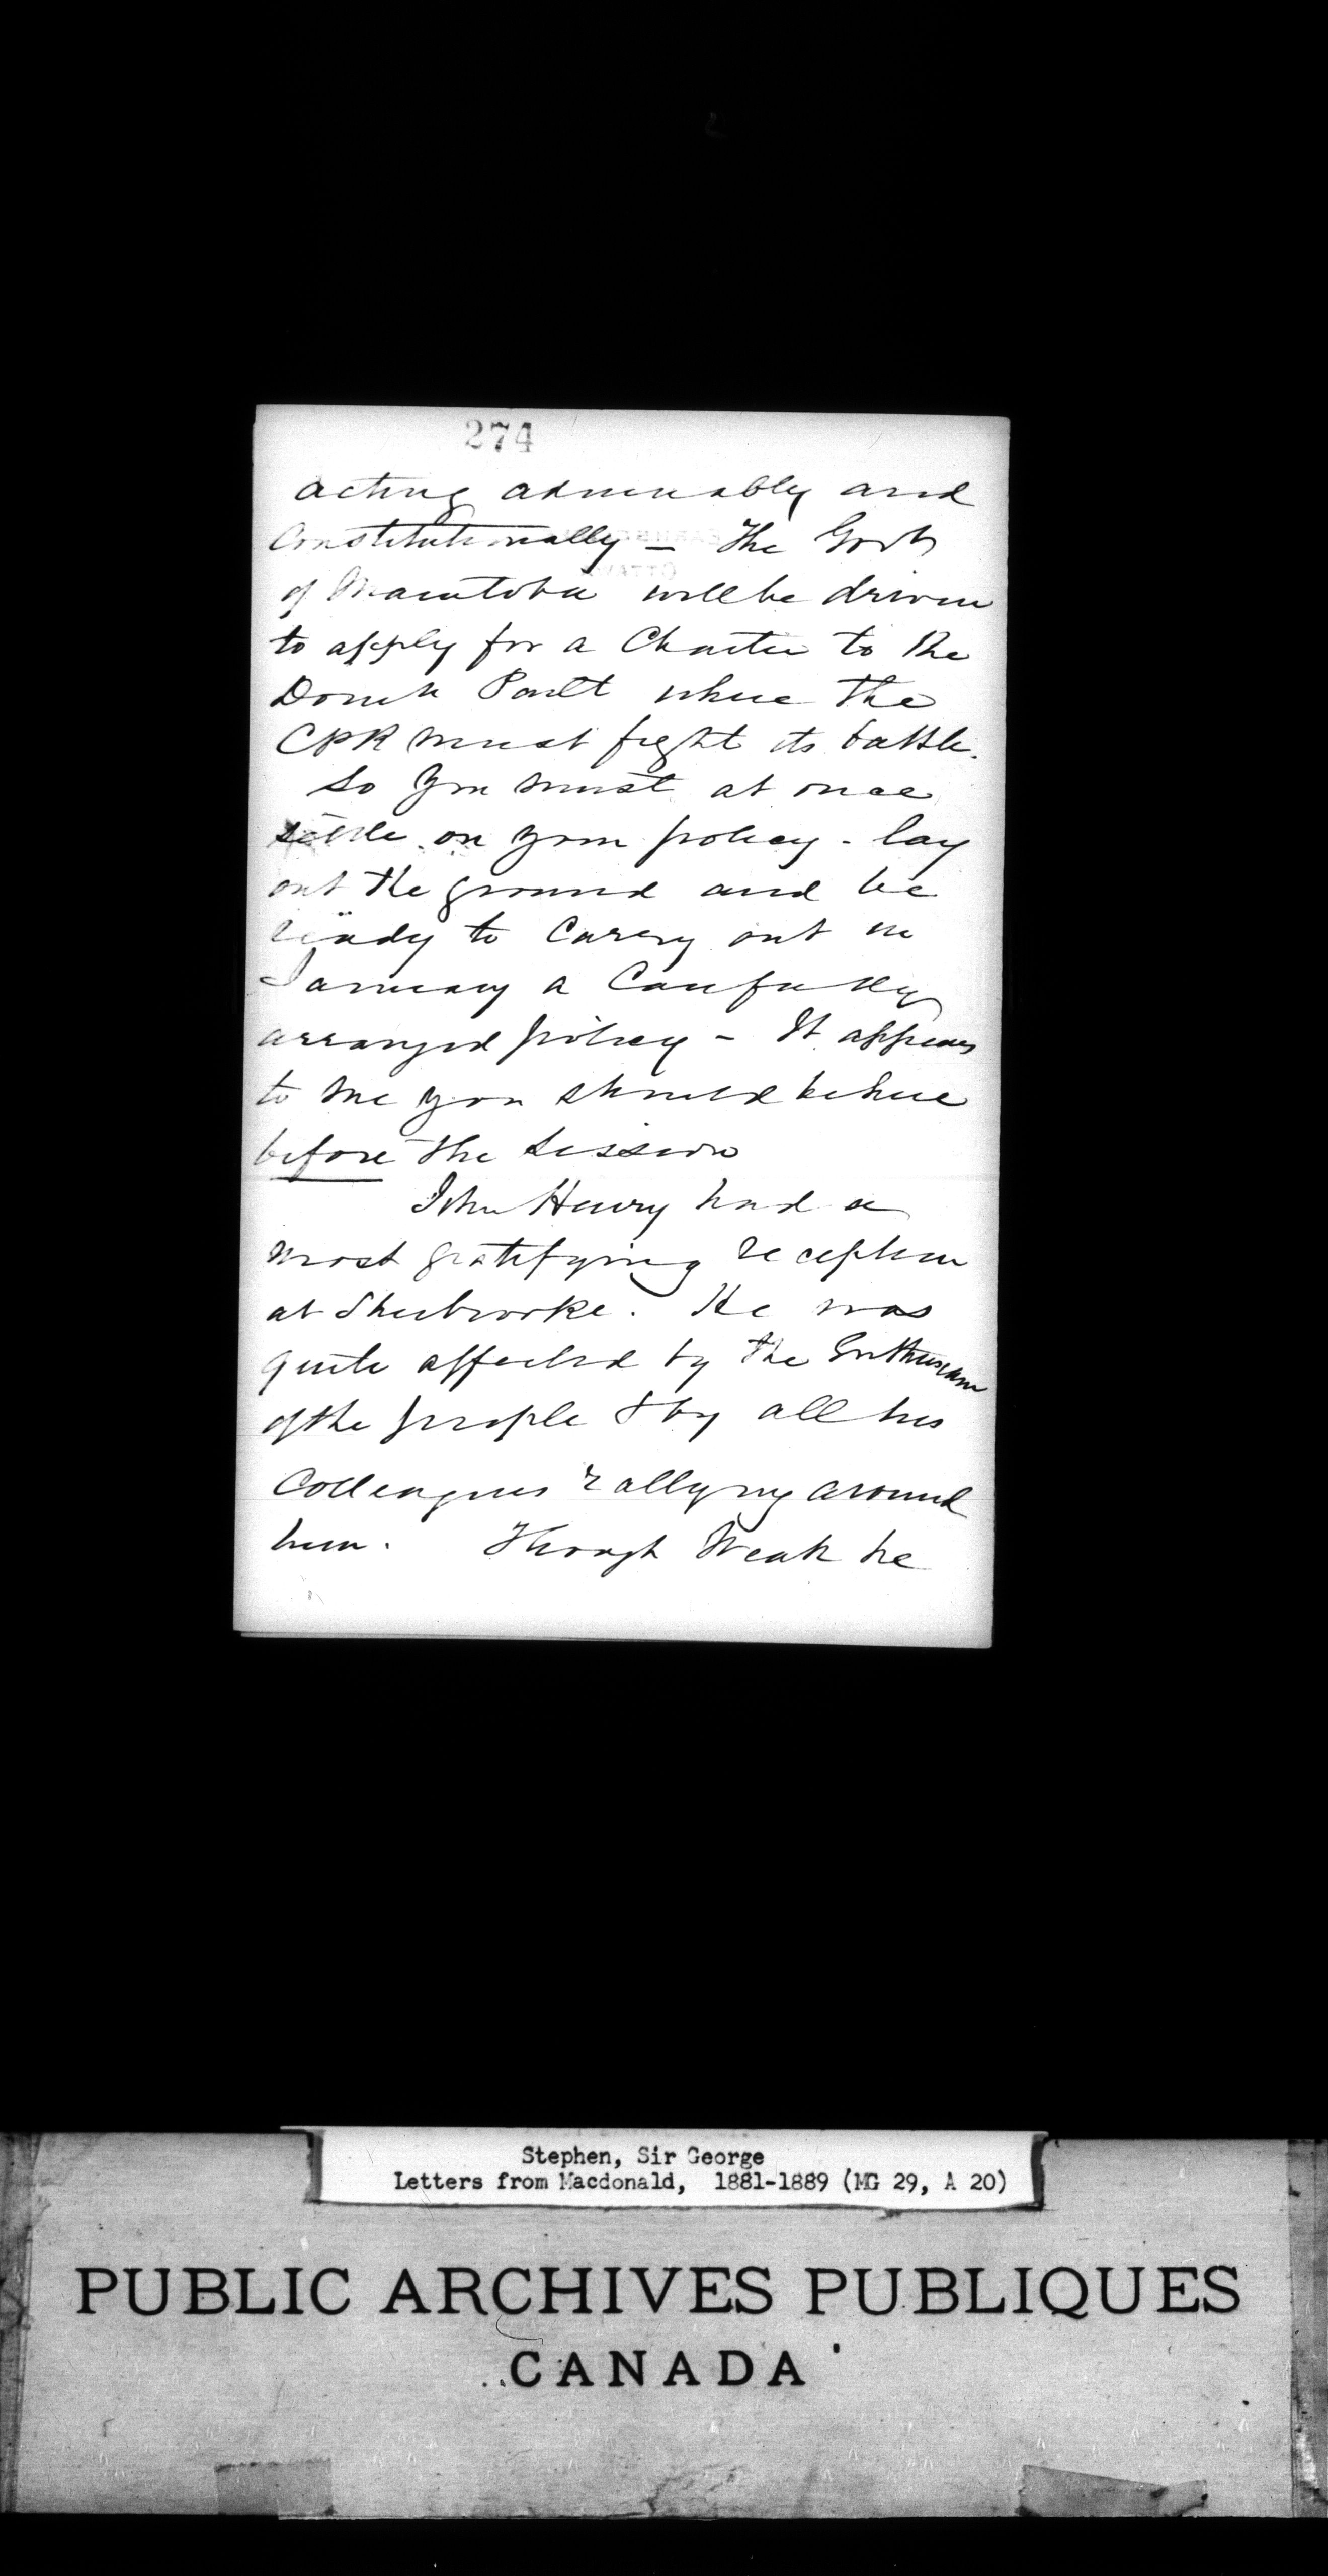 274
acting admirably and
Constitutionally – The Govt
of Manitoba will be driven
to apply for a Charter to the
Domn Parlt where the
CPR must fight its battle.
So you must at once
settle on your policy – lay
out the ground and be
ready to carry out in
January a Carefully
arranged policy – It appears
to me you should be here
before the Session
John Henry had a
most gratifying reception
at Sherbrooke. He was
quite affected by the Enthusiasm
of the people & by all his
Colleagues rallying around
him. Though Weak he
Stephen, Sir George
Letters from Macdonald, 1881-1889 (MG 29, A 20)
PUBLIC ARCHIVES PUBLIQUES
CANADA